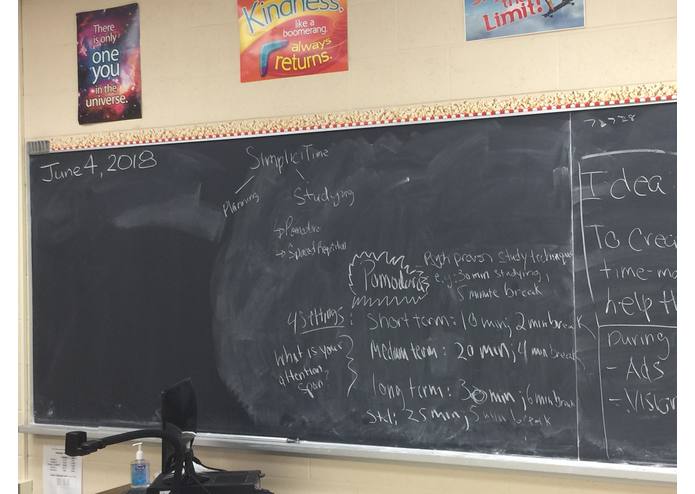 There
is only
one
you
in the
universe.
Kindness.
like a
boomerang
always
returns.
Limit!
June 4, 2018
SimpliciTime
Planning
Studying
→ Pomodoro
→ Spaced
Pomodoro
proven study technique
e.g: 30 min studying,
5 minute break
4 settings: short term: 10 min; 2 min break
Medium term: 20 min; 4 min break
What is your
attention
span?
long term: 30 min; 6 min break
Std: 25 min; 5 min break
Idea
To Crea
time-ma
help th
During
- Ads
- Vision